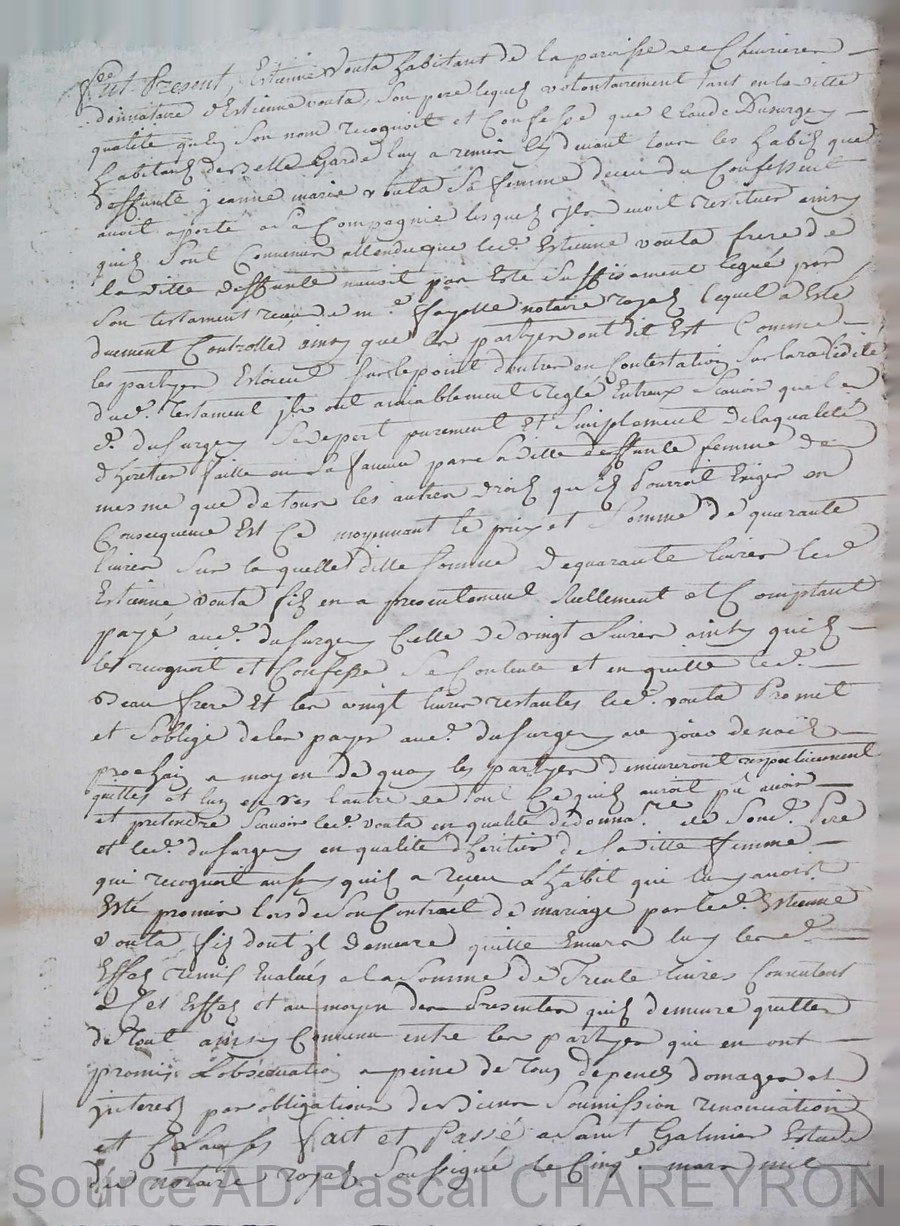 fut Present, Estienne vouta habitant de la paroisse de Chevrieres
donnataire d'Estienne vouta, son pere lequel volontairement tant en la ditte
qualité qu'en son nom recognoit et Confesse que Claude Dusurgey
habitant de Belle Garde luy a remis cy devant tous les habits que
deffunte jeanne marie vouta Sa femme
avoit aporté a Sa Compagnie lesquels il devoit restituer ainsy
quils Sont Convenus attendu que led. Estienne vouta frere de
la ditte deffunte n'auroit pas Esté Suffisament legué par
Son testament receu de me. fayolle notaire royal lequel a Esté
duement Controllé ainsy que les partyes ont dit Est Comme
les partyes Estoient Sur le point d'entrer en Contestation Sur la validité
dud. testament ils ont amiablement reglé Entreux Scavoir que led
d. dusurgey Se depart purement et Simplement de la qualité
d'heritier faitte en Sa faveur par Sa ditte deffunte femme de
mesme que de tous les autres droits qu'il Pourroit Exiger en
Consequence Est Ce moyennant le prix et Somme de quarante
livres Sur laquelle ditte Somme de quarante livres led
Estienne vouta fils en a presentement Reellement et Comptant
payé aud. dusurgey Celle de vingt Livres ainsy quil
le recognoit et Confesse Se Contente et en quitte led.
Beau frere Et les vingt livres restantes led. vouta Promet
et S'oblige de les payer aud. dusurgey au jour de noël
prochain a moyen de quoy les partyes demeureront respectivement
quittes et luy envers l'autre de tout Ce quil auroit pû avoir
et pretendre Scavoir led. vouta en qualité de donnare. de Sond. Pere
et led. dusurgey en qualité d'heritier de Sa ditte femme
qui recognoit aussy quil a receu L'habit qui luy avoit
Esté promis lors de Son Contract de mariage par led. Estienne
vouta, fils dont il demeure quitte Envers luy les d.
Effets remis Evalués a la Somme de Trente livres
Ces Effets et au moyen des Presentes quil demeure quitte
de tout ainsy Convenu entre les partyes qui en ont
promis L'observation a peine de Tous depens domages et
interets par obligations de biens Soumission renonciation
et Clauses fait et Passé a Saint Galmier Estude
du notaire royal Soussigné le Cinqe. mars mil
Source AD Pascal CHAREYRON